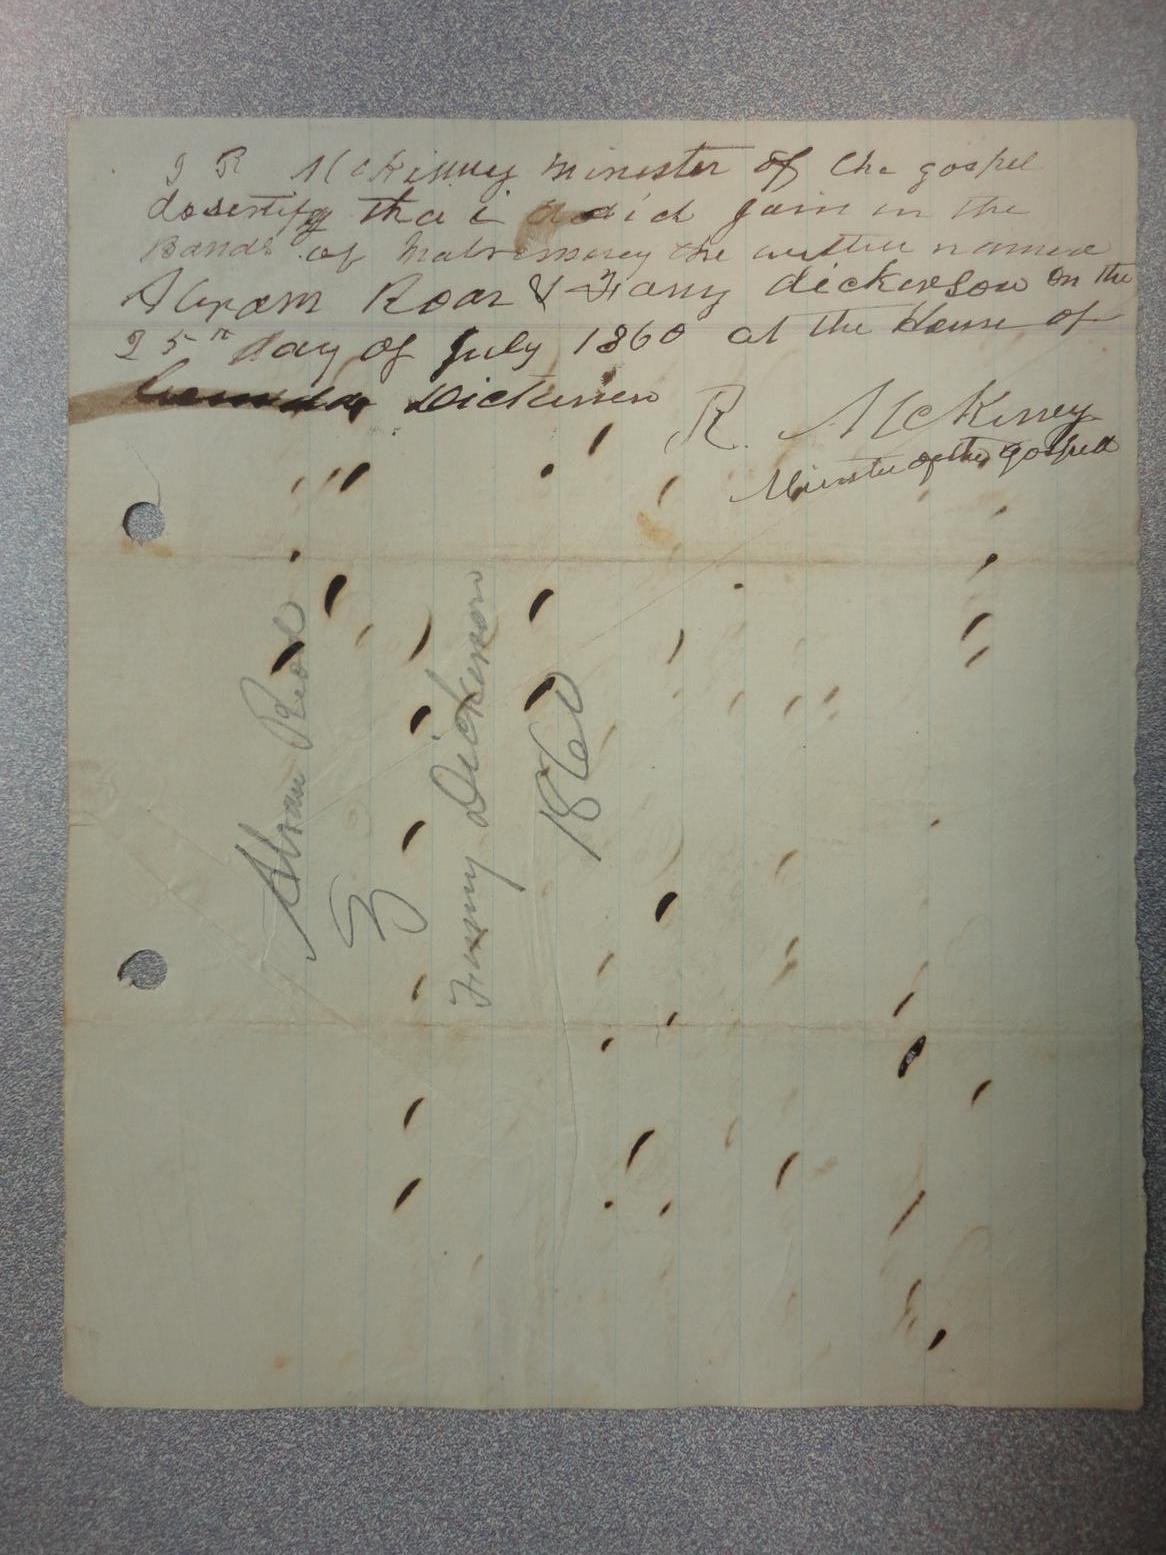 I R McKinney minester of the gospel
do sertify tha i did join in the
Bands of Matremoney the within named
Abram Roar & Fany dickerson on the
25th day of July 1860 at the House of
Dickerson
R. McKinney
Minister of the gospell
Abram
&
Dickerson
1860